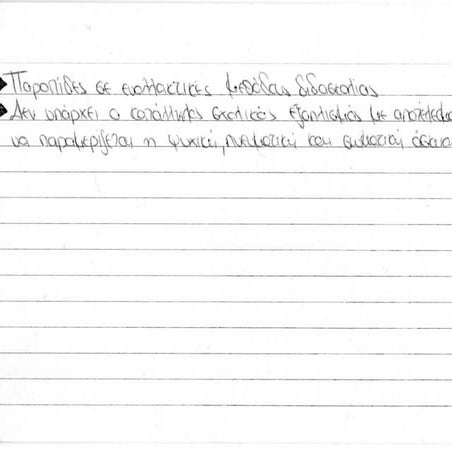 Παρωπίδες σε εναλλακτικές μεθόδους διδασκαλίας
Δεν υπάρχει ο κατάλληλος σχολικός εξοπλισμός με αποτέλεσμα
να παραμερίζεται η ψυχική, πνευματική και σωματική άσκηση